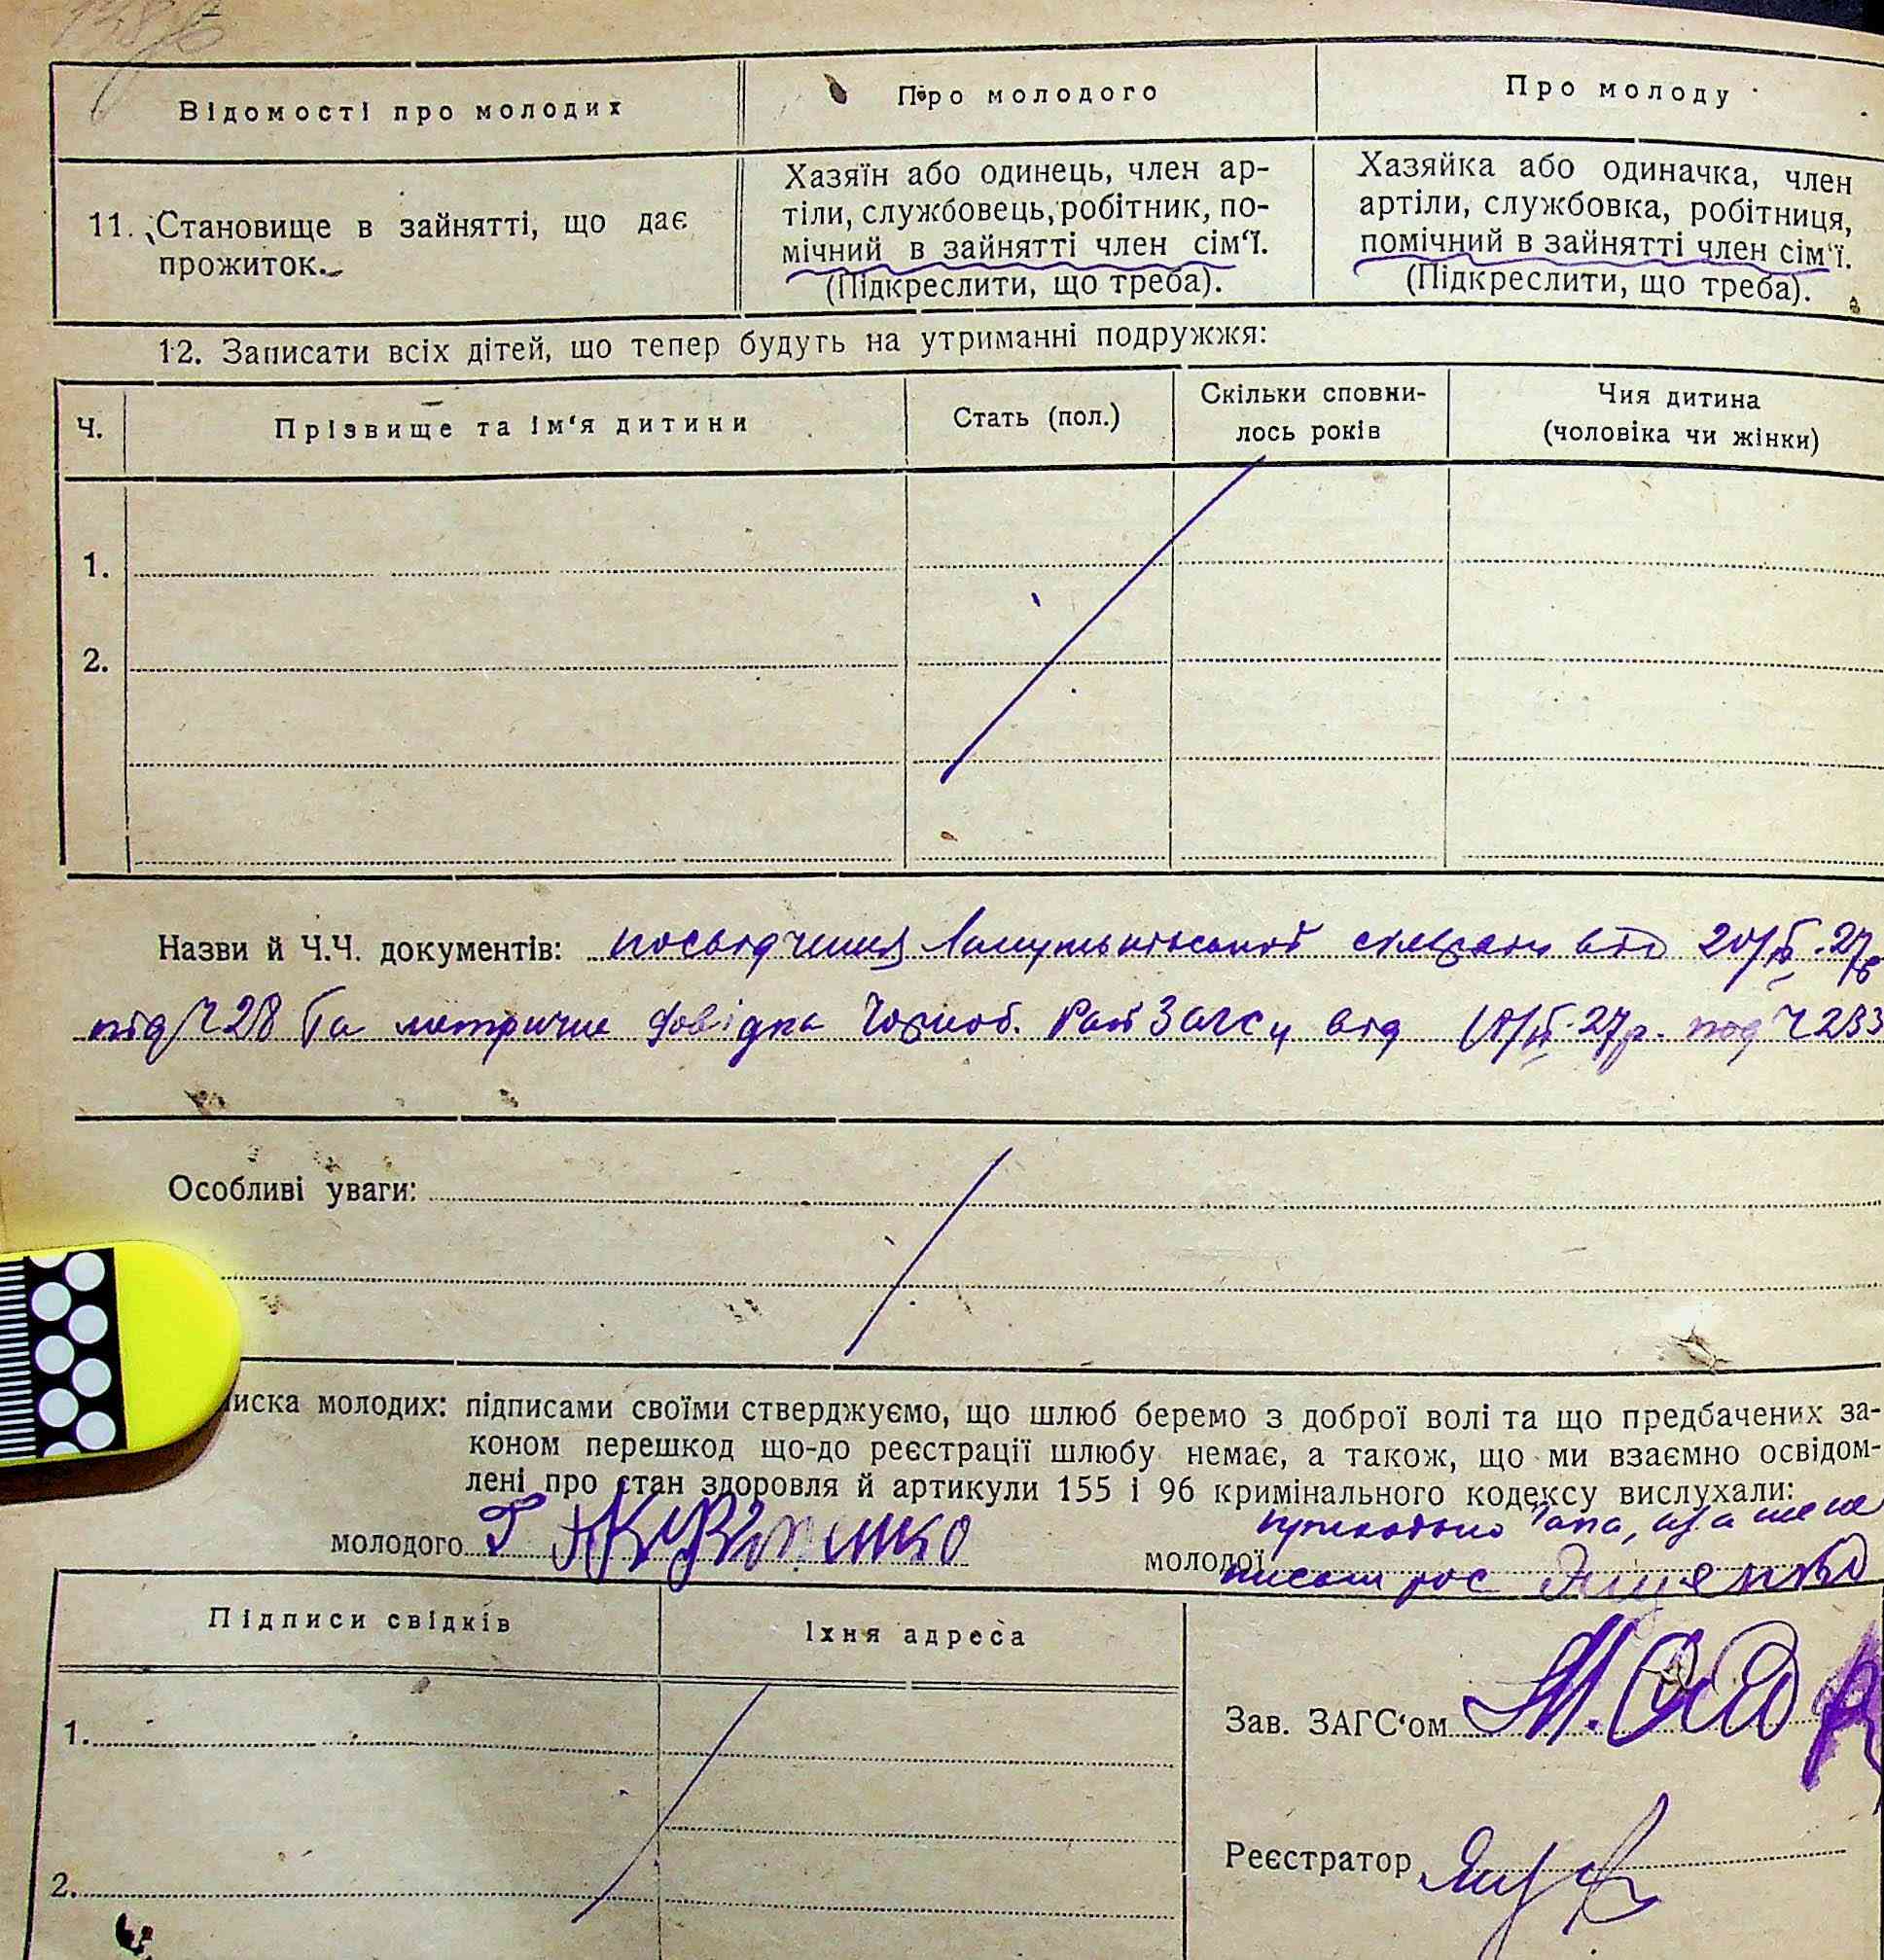 Відомості про молодих
Про молодого
Про молоду
11. Становище в зайнятті, що дає
прожиток.
Хазяїн або одинець, член ар-
тіли, службовець, робітник, по-
мічний в зайнятті член сім‘ї.
(Підкреслити, що треба).
Хазяйка або одиначка, член
артіли, службовка, робітниця,
помічний в зайнятті член сім‘ї.
(Підкреслити, що треба).
12. Записати всіх дітей, що тепер будуть на утриманні подружжя:
Ч.
Прізвище та ім‘я дитини
Стать (пол.)
Скільки сповни-
лось років
Чия дитина
(чоловіка чи жінки)
1.
2.
Назви й Ч.Ч. документів: сільради від
під Ч 28 та метричне довідка Чорноб. Рай Загсу від 27р. под Ч 233
Особливі уваги:
иска молодих: підписами своїми стверджуємо, що шлюб беремо з доброї волі та що предбачених за-
коном перешкод що-до реєстрації шлюбу немає, а також, що ми взаємно освідом-
лені про стан здоровля й артикули 155 і 96 кримінального кодексу вислухали:
молодого
молодої
Ященко
Підписи свідків
Їхня адреса
1.
2.
Зав. ЗАГС‘ом
Реєстратор